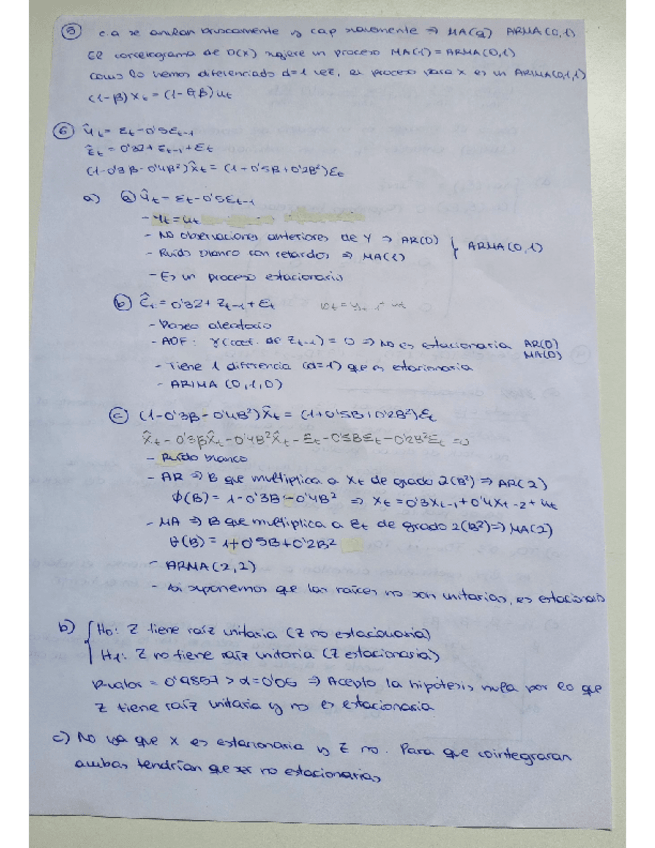 ⑤ c a se anulan bruscamente y cap suavemente ⇒ MA(q) ARMA(0,1)
El correlograma de D(X) sugiere un proceso MA(1) = ARMA(0,1)
Como lo hemos diferenciado d=1 vez, el proceso para x es un ARIMA(0,1,1)
(1-β)Xt = (1-θ,β)ut
⑥ Ŷt = Et - 0'5Et-1
Ẑt = 0'32 + Zt-1 + Et
(1-0'3B-0'4B²)X̂t = (1-0'5B+0'2B²)Et
a) ⓐ Ŷt = Et - 0'5Et-1
- Yt = ut
- No observaciones anteriores de Y ⇒ AR(0)
- Ruido blanco con retardos ⇒ MA(1) } ARMA(0,1)
- Es un proceso estacionario
ⓑ Ẑt = 0'32 + Zt-1 + Et
- Paseo aleatorio
- ADF: γ(coef. de Zt-1) = 0 ⇒ No es estacionaria AR(0)
MA(0)
- Tiene 1 diferencia (d=1) que es estacionaria
- ARIMA (0,1,0)
ⓒ (1-0'3B-0'4B²)X̂t = (1+0'5B+0'2B²)Et
X̂t - 0'3βX̂t - 0'4B²X̂t - Et - 0'5BEt - 0'2B²Et ⇒
- Ruido blanco
- AR ⇒ B que multiplica a Xt de grado 2(B²) ⇒ AR(2)
ϕ(B) = 1-0'3B-0'4B² ⇒ Xt = 0'3Xt-1 + 0'4Xt-2 + ut
- MA ⇒ B que multiplica a Et de grado 2(B²) ⇒ MA(2)
θ(B) = 1+0'5B+0'2B²
- ARMA(2,2)
- Si suponemos que las raíces no son unitarias, es estacionaria
b) { H0: Z tiene raíz unitaria (Z no estacionaria)
H1: Z no tiene raíz unitaria (Z estacionaria)
P-valor = 0'9857 > α=0'05 ⇒ Acepto la hipótesis nula por lo que
Z tiene raíz unitaria y no es estacionaria
c) No ya que X es estacionaria y Z no. Para que cointegraran
ambas tendrían que ser no estacionarias